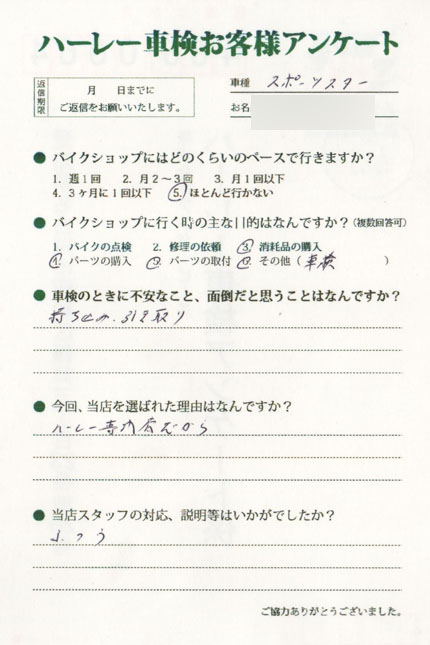 ハーレー車検お客様アンケート
返信期限
月 日までに
ご返信をお願いいたします。
車種 スポーツスター
お名
● バイクショップにはどのくらいのペースで行きますか?
1. 週1回 2. 月2~3回 3. 月1回以下
4. 3ヶ月に1回以下 5. ほとんど行かない
● バイクショップに行く時の主な目的はなんですか?(複数回答可)
1. バイクの点検 2. 修理の依頼 3. 消耗品の購入
4. パーツの購入 5. パーツの取付 6. その他( 車検 )
● 車検のときに不安なこと、面倒だと思うことはなんですか?
持ち込み、引き取り
● 今回、当店を選ばれた理由はなんですか?
ハーレー専門店だから
● 当店スタッフの対応、説明等はいかがでしたか?
ふつう
ご協力ありがとうございました。